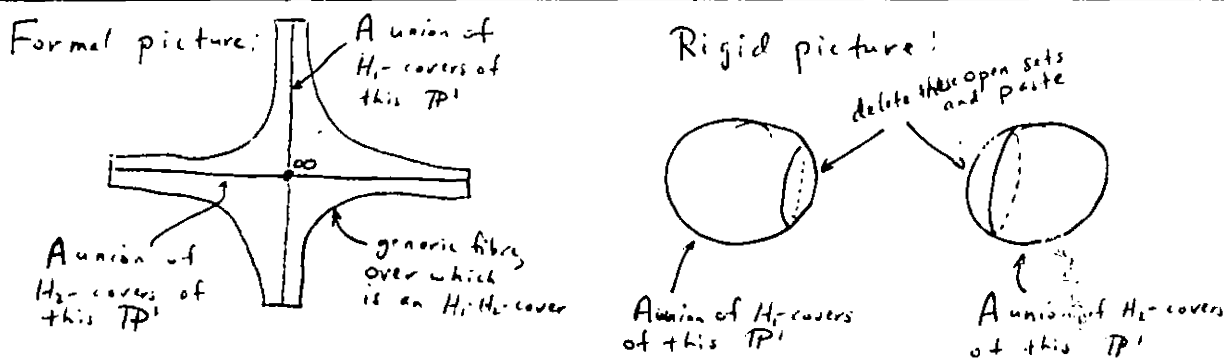 Formal picture:
A union of
H₁-covers of
this ℙ¹
∞
A union of
H₂-covers of
this ℙ¹
generic fibre,
over which
is an H₁·H₂-cover
Rigid picture:
delete these open sets
and paste
A union of H₁-covers
of this ℙ¹
A union of H₂-covers
of this ℙ¹